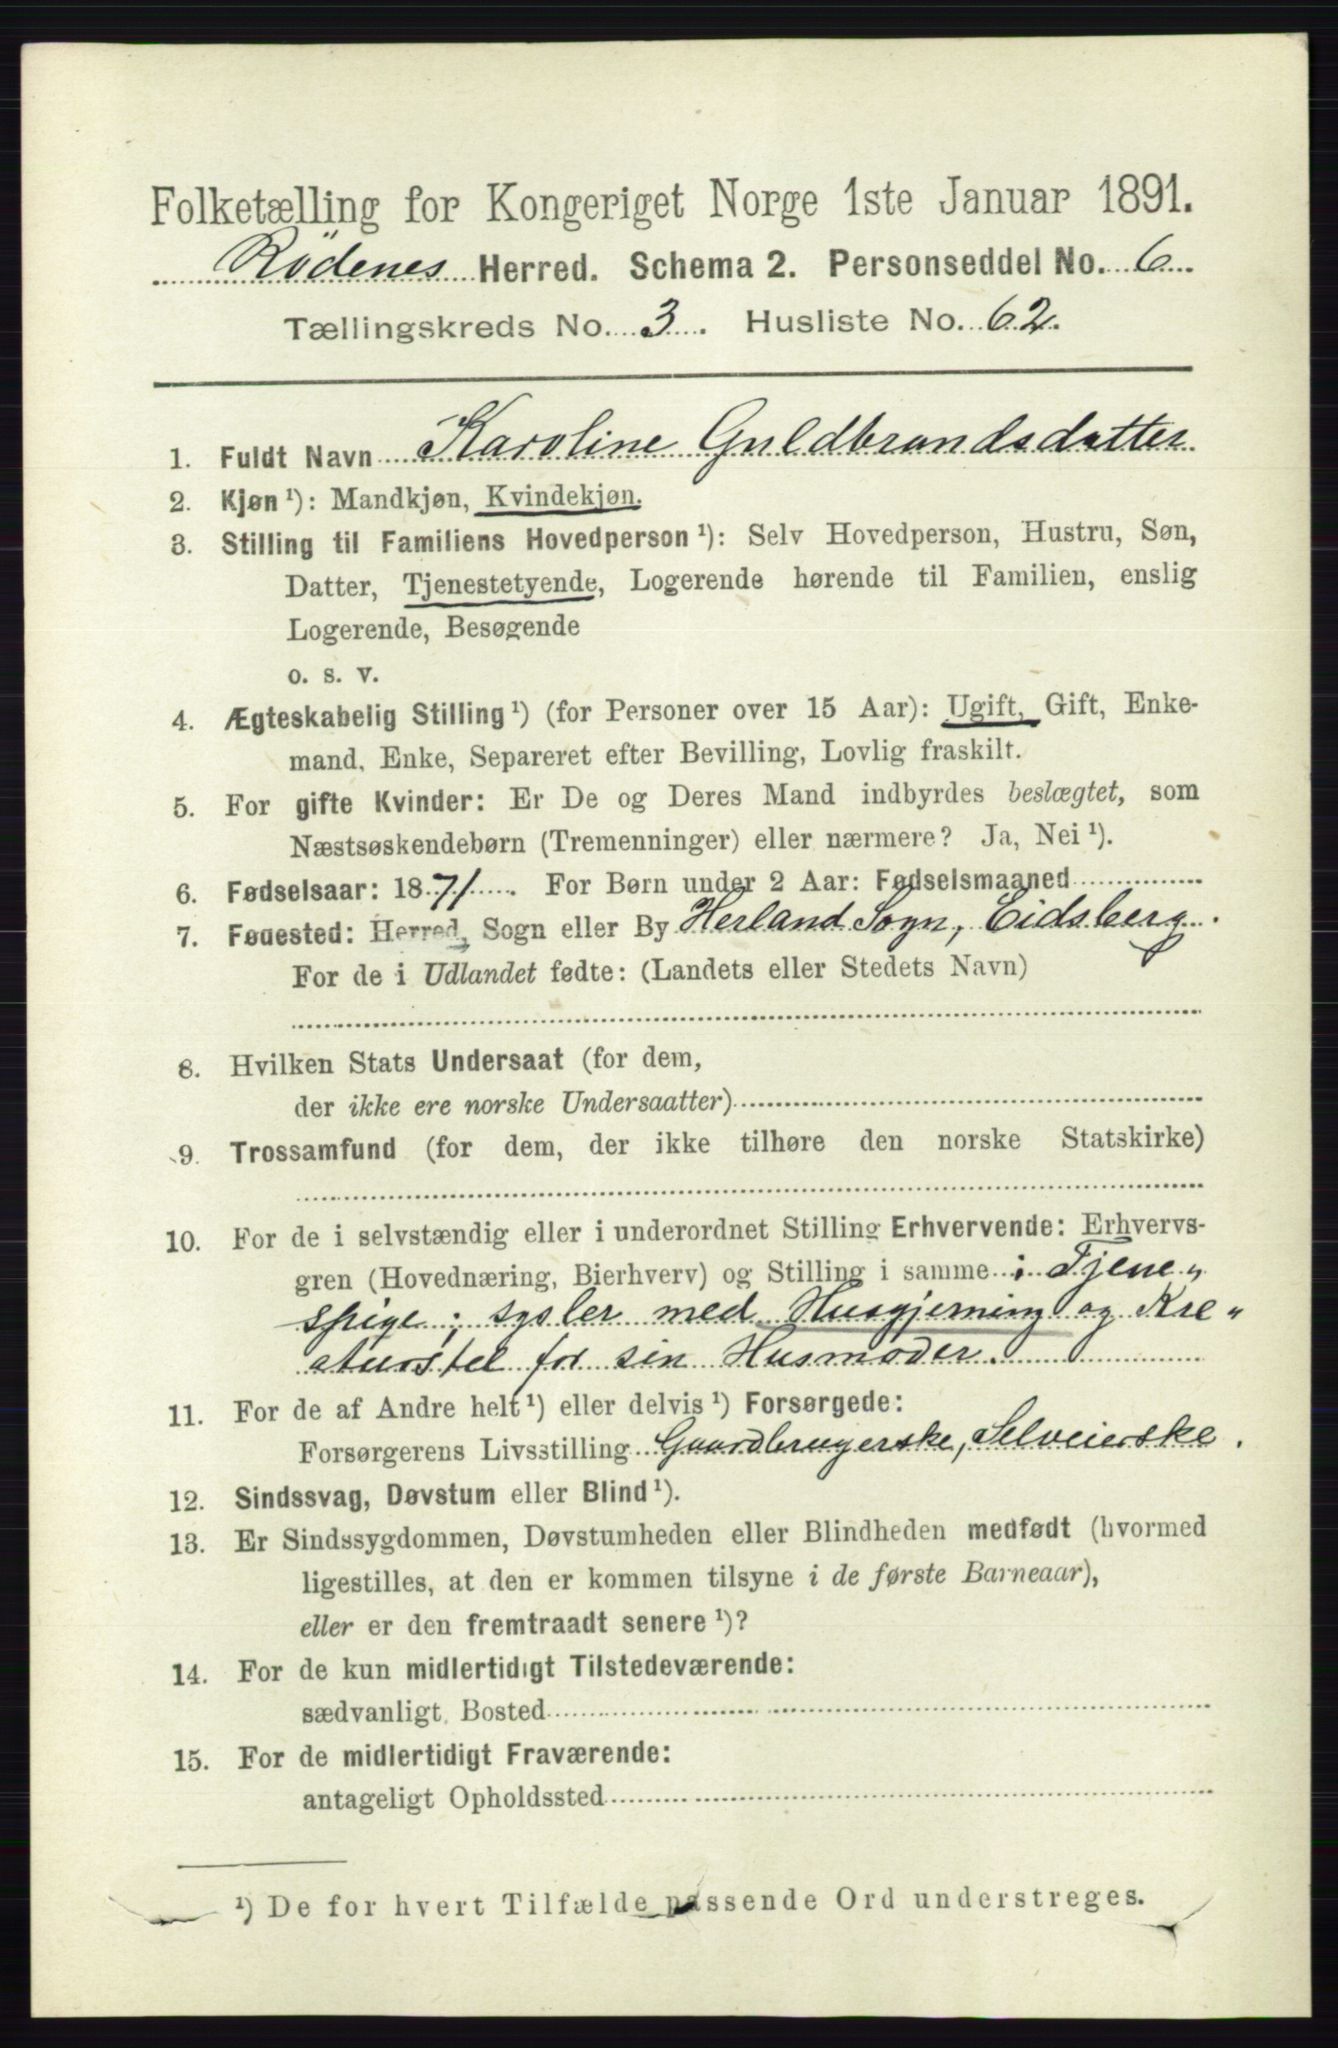 Folketælling for Kongeriget Norge 1ste Januar 1891.
Rödenes Herred. Schema 2. Personseddel No. 6
Tællingskreds No. 3. Husliste No. 62.
1. Fuldt Navn Karoline Guldbrandsdatter
2. Kjøn ¹): Mandkjøn, Kvindekjøn.
3. Stilling til Familiens Hovedperson ¹): Selv Hovedperson, Hustru, Søn,
Datter, Tjenestetyende, Logerende hørende til Familien, enslig
Logerende, Besøgende
o. s. v.
4. Ægteskabelig Stilling ¹) (for Personer over 15 Aar): Ugift, Gift, Enke-
mand, Enke, Separeret efter Bevilling, Lovlig fraskilt.
5. For gifte Kvinder: Er De og Deres Mand indbyrdes beslægtet, som
Næstsøskendebørn (Tremenninger) eller nærmere? Ja, Nei ¹).
6. Fødselsaar: 1871. For Børn under 2 Aar: Fødselsmaaned
7. Fødested: Herred, Sogn eller By Herland Sogn, Eidsberg.
For de i Udlandet fødte: (Landets eller Stedets Navn)
8. Hvilken Stats Undersaat (for dem,
der ikke ere norske Undersaatter)
9. Trossamfund (for dem, der ikke tilhøre den norske Statskirke)
10. For de i selvstændig eller i underordnet Stilling Erhvervende: Erhvervs-
gren (Hovednæring, Bierhverv) og Stilling i samme : Tjene„
spige; sysler med Husgjerning og Kre„
aturstel for sin Husmoder.
11. For de af Andre helt ¹) eller delvis ¹) Forsørgede:
Forsørgerens Livsstilling Gaardbrugerske, Selveierske.
12. Sindssvag, Døvstum eller Blind ¹).
13. Er Sindssygdommen, Døvstumheden eller Blindheden medfødt (hvormed
ligestilles, at den er kommen tilsyne i de første Barneaar),
eller er den fremtraadt senere ¹)?
14. For de kun midlertidigt Tilstedeværende:
sædvanligt Bosted
15. For de midlertidigt Fraværende:
antageligt Opholdssted
¹) De for hvert Tilfælde passende Ord understreges.